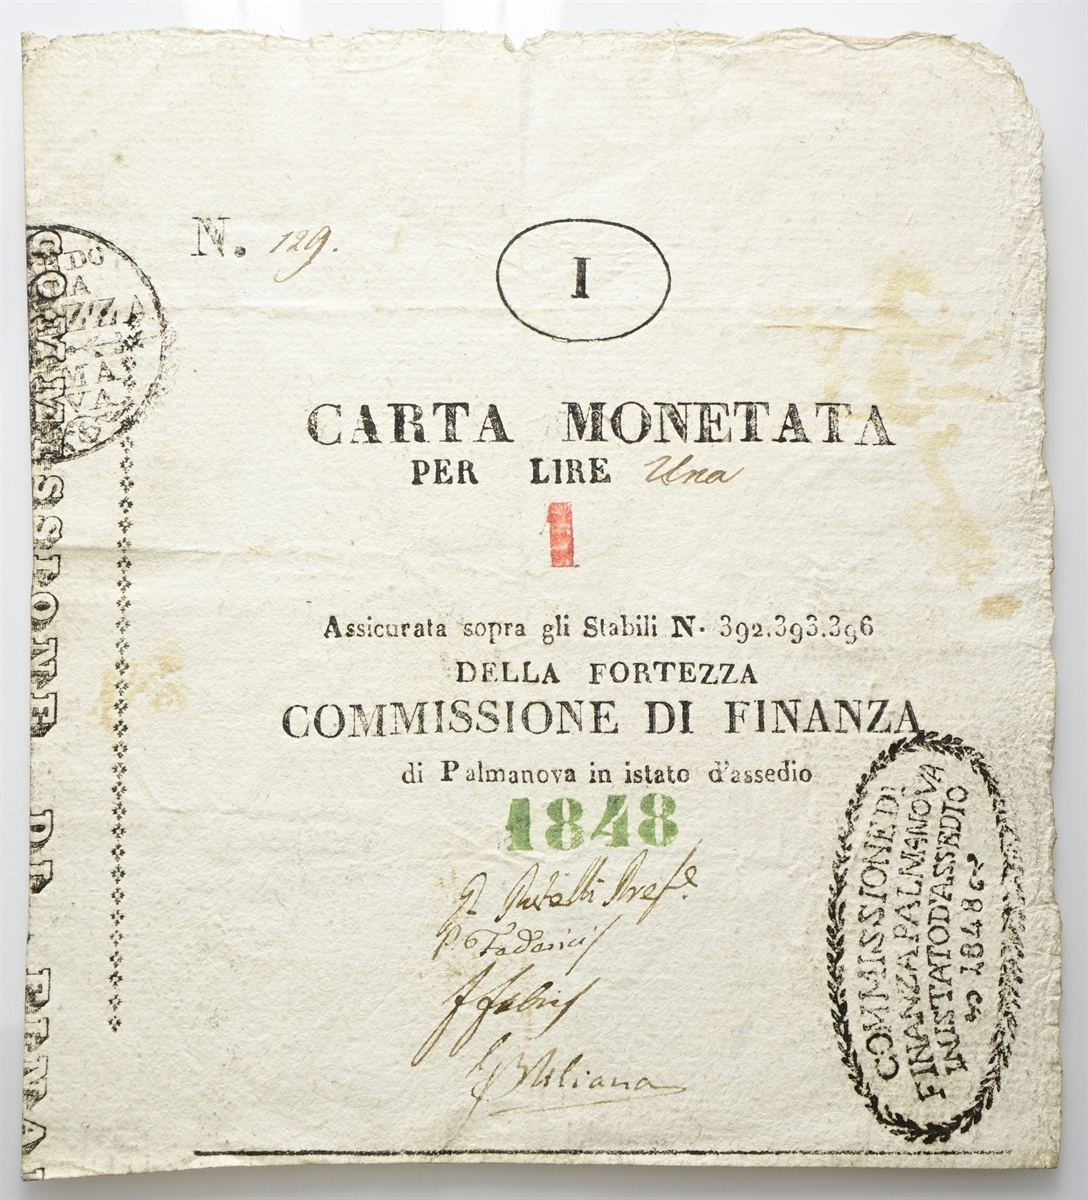 N. 129.
I
CARTA MONETATA
PER LIRE Una
1
Assicurata sopra gli Stabili N. 392.393.396
DELLA FORTEZZA
COMMISSIONE DI FINANZA
di Palmanova in istato d'assedio
1848
COMMISSIONE DI
FINANZA PALMANOVA
IN ISTATO D'ASSEDIO
1848
COMMISSIONE DI FINA